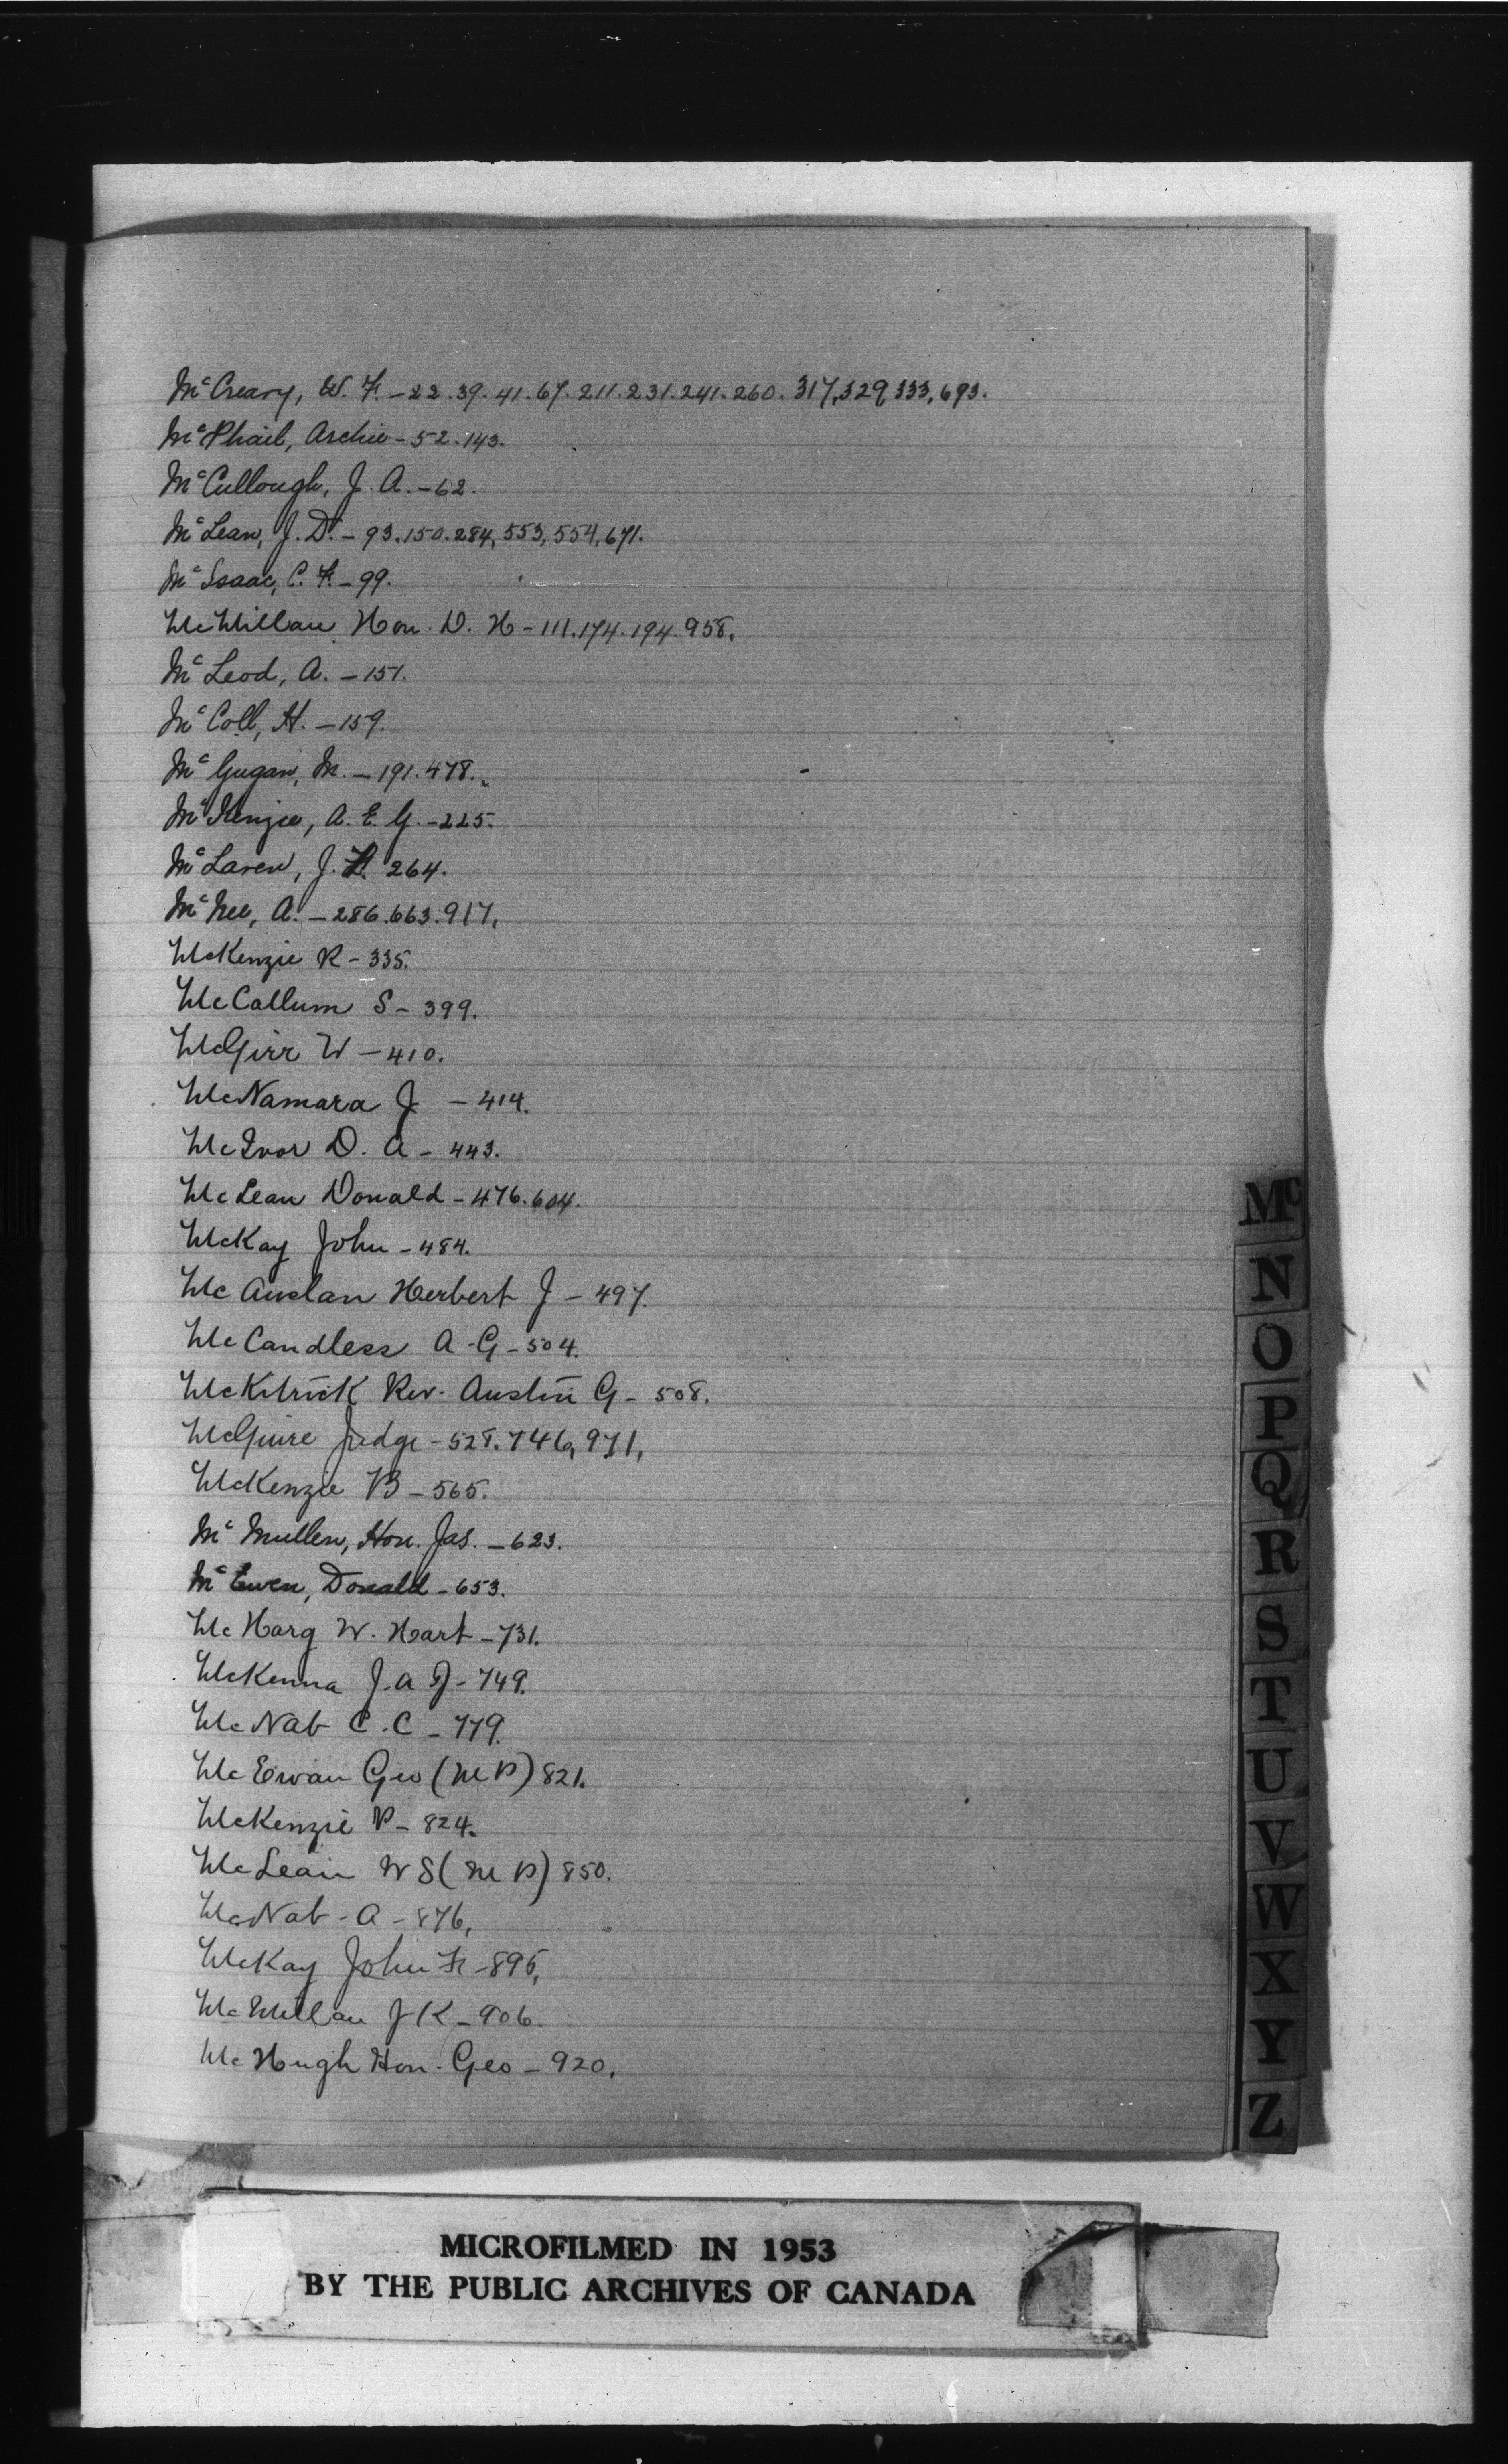 McCreary, W. F. - 22. 39. 41. 67. 211. 231. 241. 260. 317, 329, 333, 693.
McPhail, Archie - 52. 143.
McCullough, J. A. - 62.
McLean, J. D. - 93. 150. 284, 553, 554, 671.
McIsaac, C. F. - 99.
McMillan Hon. D. H - 111. 174. 194. 958.
McLeod, A. - 151.
McColl, H. - 159.
McGugan, M. - 191. 478.
McKenzie, A. E. G. - 225.
McLaren, J. 264.
McNee, A. - 286. 663. 917,
McKenzie R - 335.
McCallum S - 399.
McGirr W - 410.
McNamara J - 414.
McIvor D. A - 443.
McLean Donald - 476. 604.
McKay John - 484.
McAuslan Herbert J - 497.
McCandless A - G - 504.
McKitrick Rev. Austin G - 508.
McGuire Judge - 528. 746, 971,
McKenzie B - 565.
McMullen, Hon. Jas. - 623.
McEwen, Donald - 653.
McHarg W. Hart - 731.
McKenna J. A J - 749.
McNab C. C - 779.
McEwan Geo (M P) 821.
McKenzie P - 824.
McLean W S (M P) 850.
McNab - A - 876,
McKay John Fr - 895,
McMillan J K - 906.
McHugh Hon - Geo - 920,
Mc
N
O
P
Q
R
S
T
U
V
W
X
Y
Z
MICROFILMED IN 1953
BY THE PUBLIC ARCHIVES OF CANADA